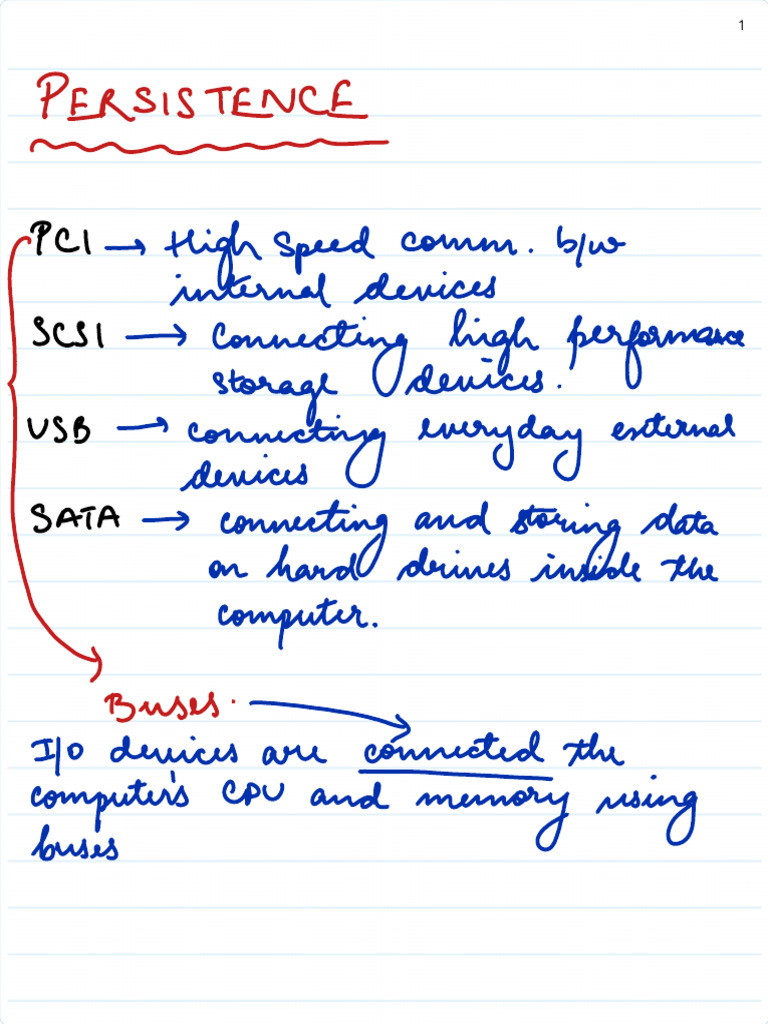 1
PERSISTENCE
PCI → High Speed comm. b/w
internal devices
SCSI → Connecting high performance
storage devices.
USB → connecting everyday external
devices
SATA → connecting and storing data
on hard drives inside the
computer.
Buses.
I/O devices are connected the
computer's CPU and memory using
buses